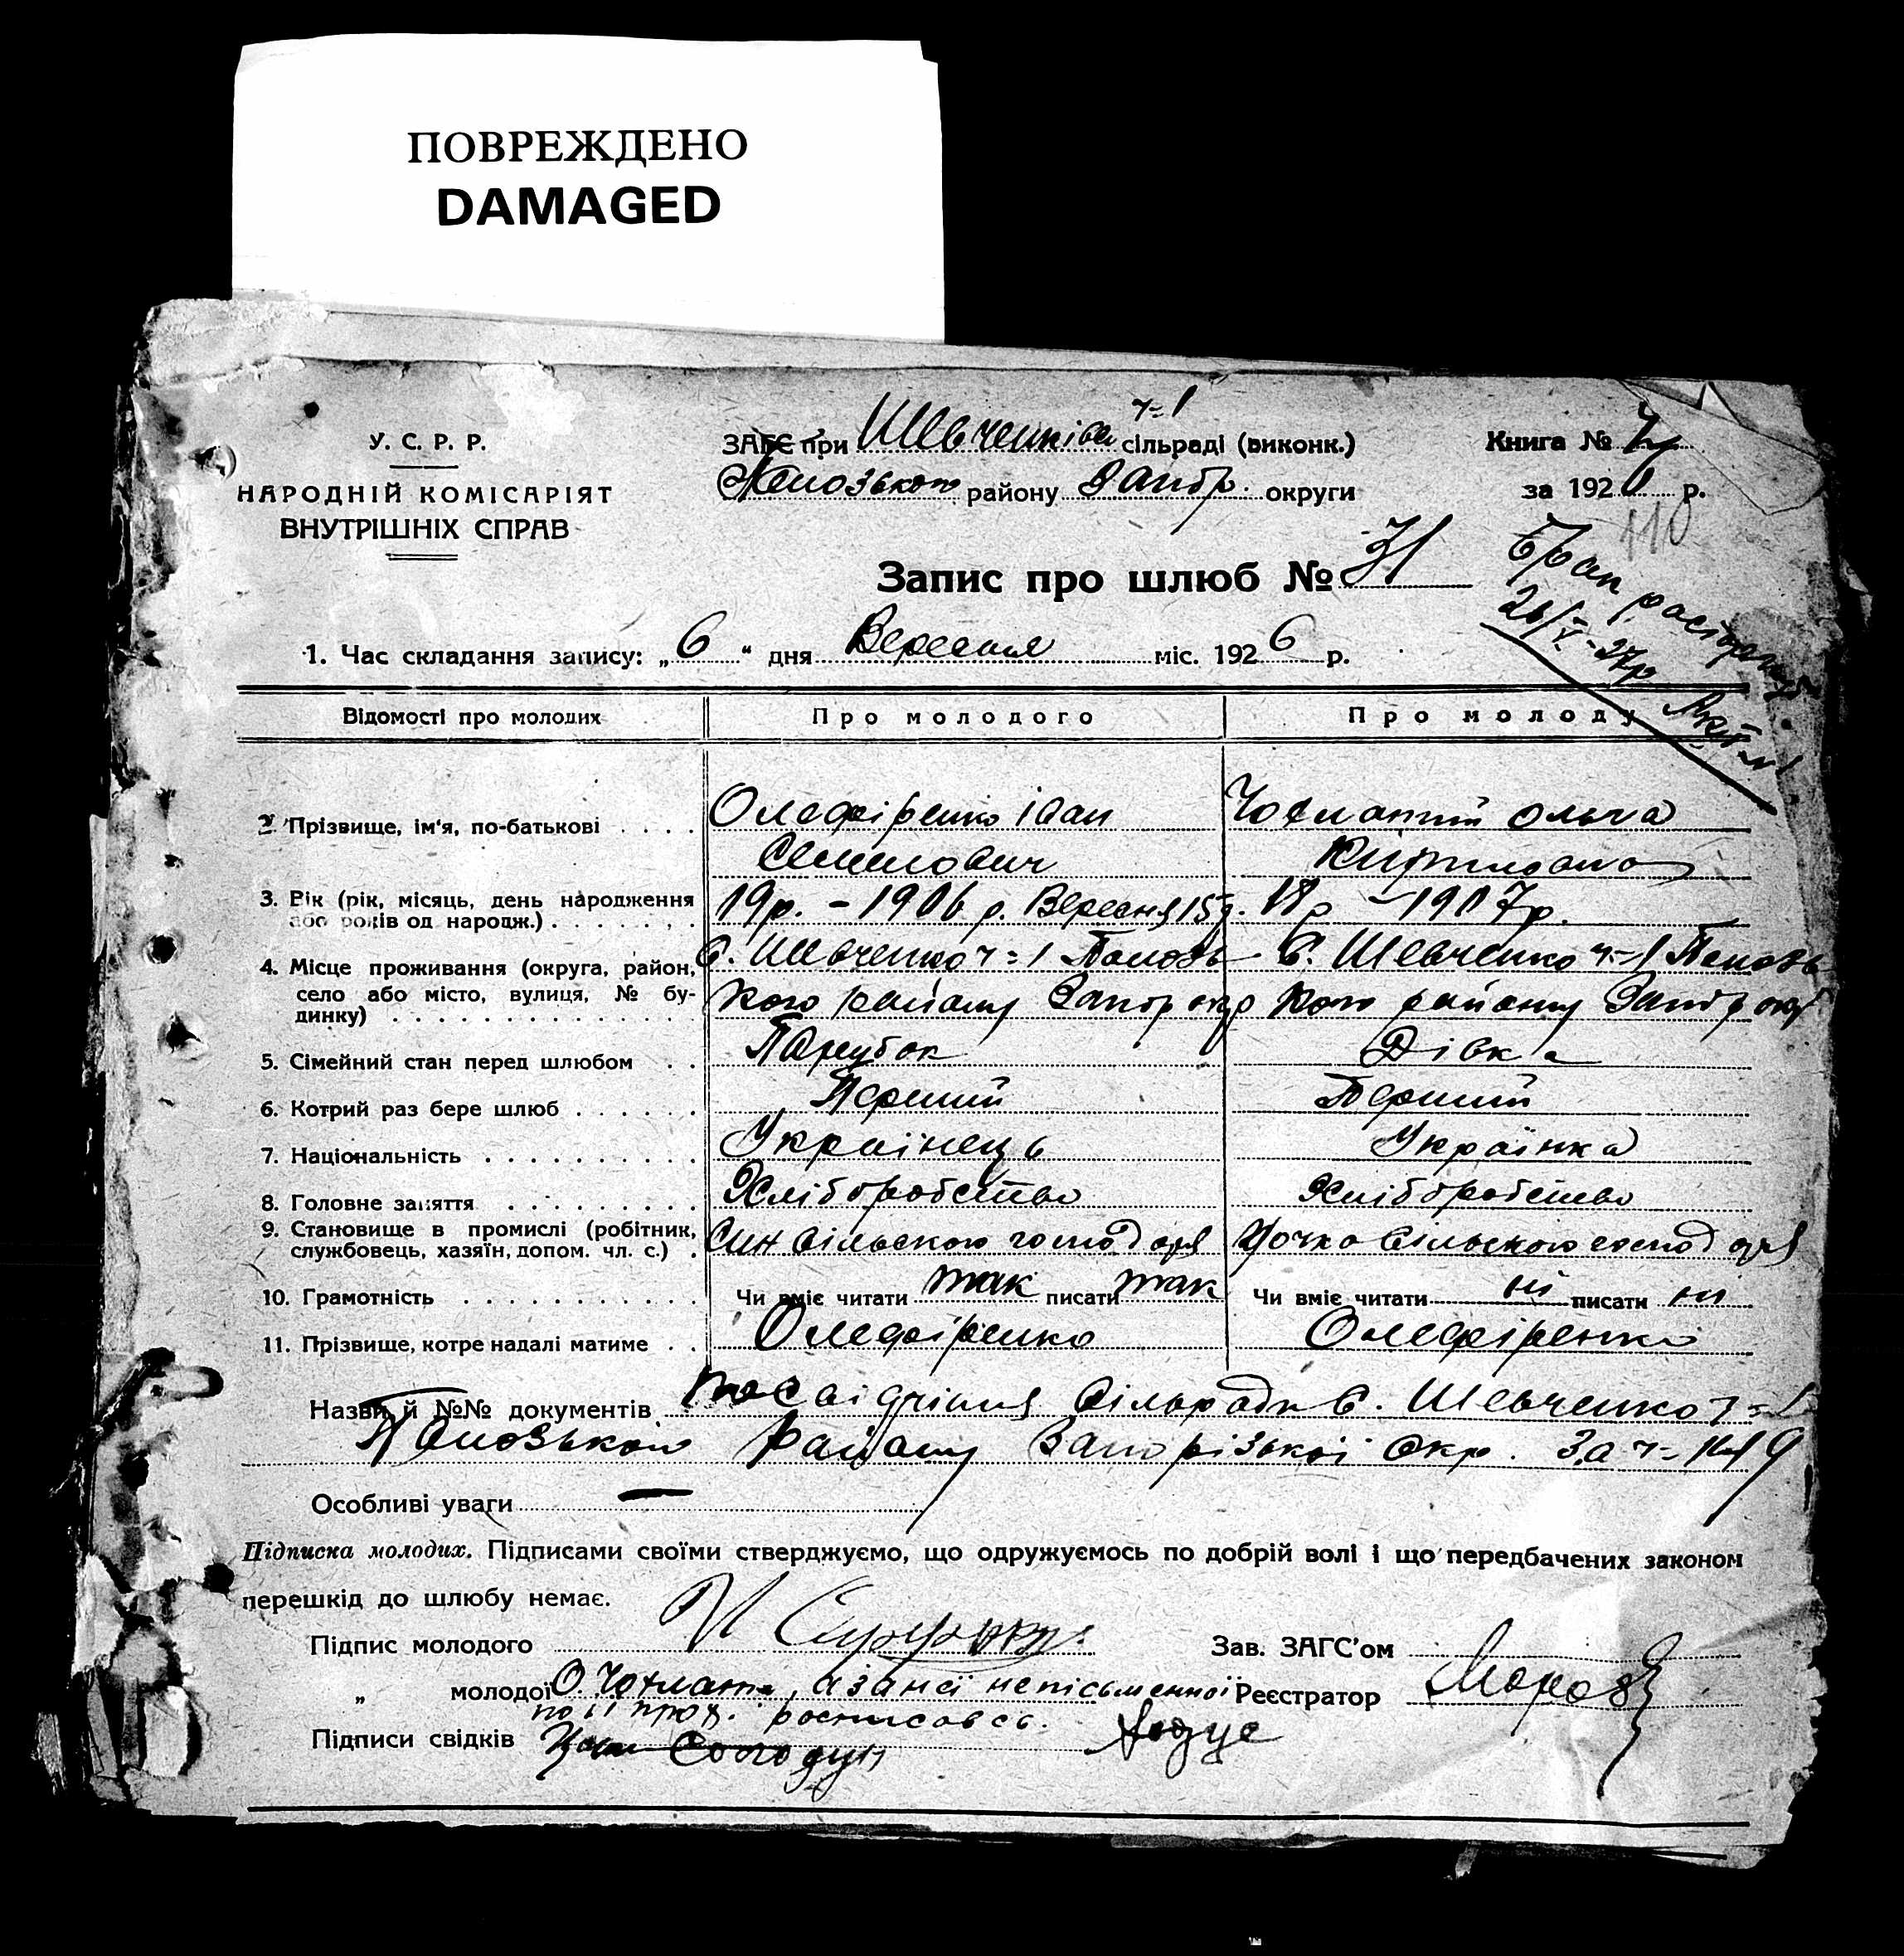 ПОВРЕЖДЕНО
DAMAGED
ч=1
У. С. Р. Р.
ЗАГС при Шевченків сільраді (виконк.)
Книга №
НАРОДНІЙ КОМІСАРІЯТ
району Запор. округи
за 1926 р.
ВНУТРІШНІХ СПРАВ
110
Запис про шлюб № 31
Брак расторгнут
26/V-27р
1. Час складання запису: „6“ дня Вересня міс. 1926 р.
Відомості про молодих
Про молодого
Про молоду
2. Прізвище, ім'я, по-батькові . . . .
Олефіренко Іван
Ольга
Семенович
Кириловна
3. Вік (рік, місяць, день народження або років од народж.) . . . . . . .
19р. – 1906 р. Вересня 15
18р – 1907р.
4. Місце проживання (округа, район, село або місто, вулиця, № будинку) . . . . . . . . . . . . . .
С. Шевченко ч=1
кого району Запор окр
С. Шевченко ч=1
кого району Запор окр
5. Сімейний стан перед шлюбом . .
Парубок
Дівка
6. Котрий раз бере шлюб . . . . . .
Перший
Перший
7. Національність . . . . . . . . . .
Українець
Українка
8. Головне заняття . . . . . . . . .
Хліборобство
Хліборобство
9. Становище в промислі (робітник, службовець, хазяїн, допом. чл. с.) .
Син сільського господаря
Дочка сільського господаря
10. Грамотність . . . . . . . . . . . .
Чи вміє читати так писати так
Чи вміє читати ні писати ні
11. Прізвище, котре надалі матиме . .
Олефіренко
Олефіренко
Назви й №№ документів посвідчіння сільради С. Шевченко ч=1
району Запорізької Окр. За ч=
Особливі уваги —
Підписка молодих. Підписами своїми стверджуємо, що одружуємось по добрій волі і що передбачених законом
перешкід до шлюбу немає.
Підпис молодого
Зав. ЗАГС'ом
„ молодої О. а за неї непісьменної
Реєстратор Мороз
по її прох. росписавсь.
Підписи свідків